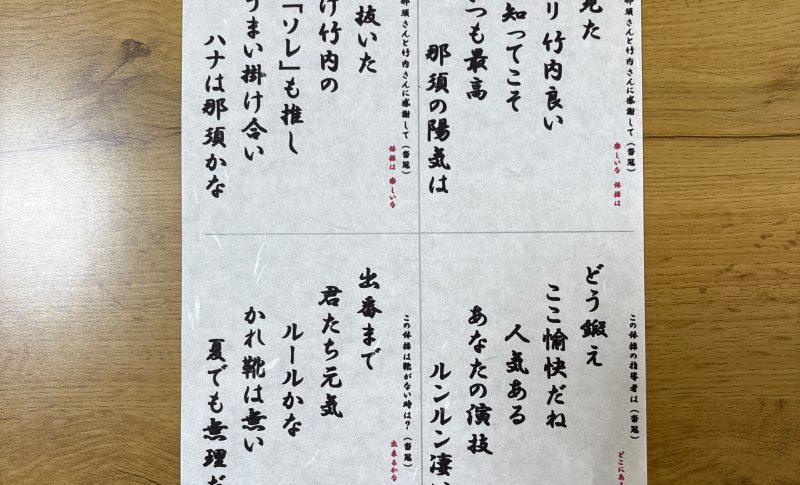 那須さんと竹内さんに感謝して(沓冠)
楽しいな 体操は
見た
リ竹内良い
知ってこそ
つも最高
那須の陽気は
那須さんと竹内さんに感謝して(沓冠)
体操は 楽しいな
抜いた
け竹内の
「ソレ」も推し
うまい掛け合い
ハナは那須かな
この体操の指導者は(沓冠)
どこにあ
どう鍛え
ここ愉快だね
人気ある
あなたの演技
ルンルン凄
この体操は靴がない時は?(沓冠)
出来るかな
出番まで
君たち元気
ルールかな
かれ靴は無い
夏でも無理だ